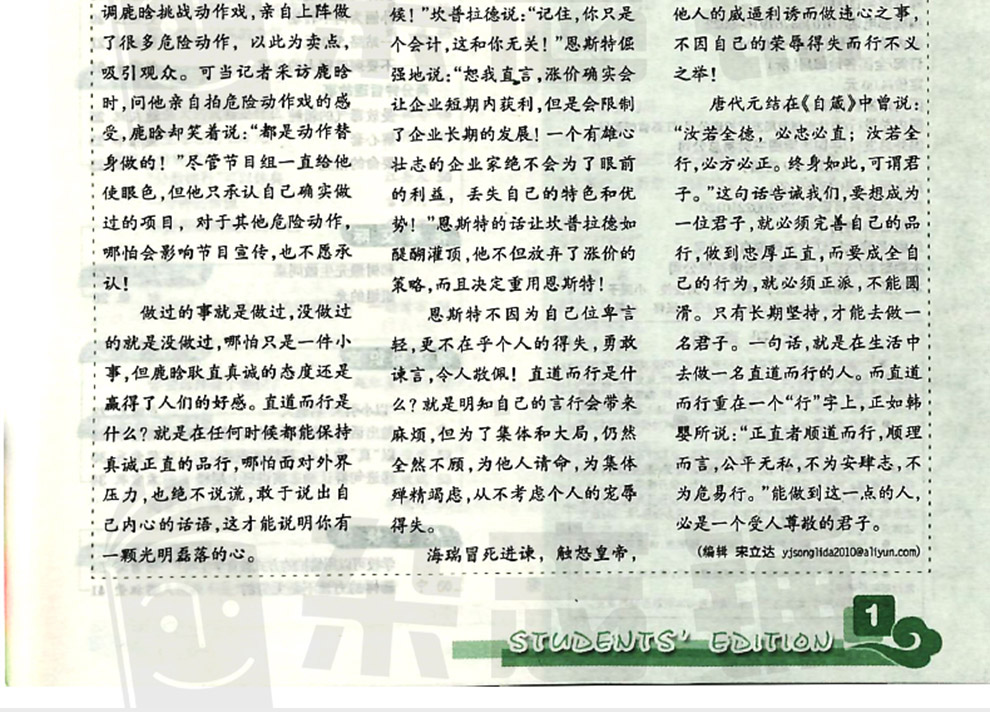 调鹿晗挑战动作戏，亲自上阵做
了很多危险动作，以此为卖点，
吸引观众。可当记者采访鹿晗
时，问他亲自拍危险动作戏的感
受，鹿晗却笑着说：“都是动作替
身做的！”尽管节目组一直给他
使眼色，但他只承认自己确实做
过的项目，对于其他危险动作，
哪怕会影响节目宣传，也不愿承
认！
做过的事就是做过，没做过
的就是没做过，哪怕只是一件小
事，但鹿晗耿直真诚的态度还是
赢得了人们的好感。直道而行是
什么？就是在任何时候都能保持
真诚正直的品行，哪怕面对外界
压力，也绝不说谎，敢于说出自
己内心的话语，这才能说明你有
一颗光明磊落的心。
候！”坎普拉德说：“记住，你只是
个会计，这和你无关！”恩斯特倔
强地说：“恕我直言，涨价确实会
让企业短期内获利，但是会限制
了企业长期的发展！一个有雄心
壮志的企业家绝不会为了眼前
的利益，丢失自己的特色和优
势！”恩斯特的话让坎普拉德如
醍醐灌顶，他不但放弃了涨价的
策略，而且决定重用恩斯特！
恩斯特不因为自己位卑言
轻，更不在乎个人的得失，勇敢
谏言，令人敬佩！直道而行是什
么？就是明知自己的言行会带来
麻烦，但为了集体和大局，仍然
全然不顾，为他人请命，为集体
殚精竭虑，从不考虑个人的宠辱
得失。
海瑞冒死进谏，触怒皇帝，
他人的威逼利诱而做违心之事，
不因自己的荣辱得失而行不义
之举！
唐代元结在《自箴》中曾说：
“汝若全德，必忠必直；汝若全
行，必方必正。终身如此，可谓君
子。”这句话告诫我们，要想成为
一位君子，就必须完善自己的品
行，做到忠厚正直，而要成全自
己的行为，就必须正派，不能圆
滑。只有长期坚持，才能去做一
名君子。一句话，就是在生活中
去做一名直道而行的人。而直道
而行重在一个“行”字上，正如韩
婴所说：“正直者顺道而行，顺理
而言，公平无私，不为安肆志，不
为危易行。”能做到这一点的人，
必是一个受人尊敬的君子。
（编辑 宋立达 yjsonglida2010@aliyun.com）
1
STUDENTS' EDITION